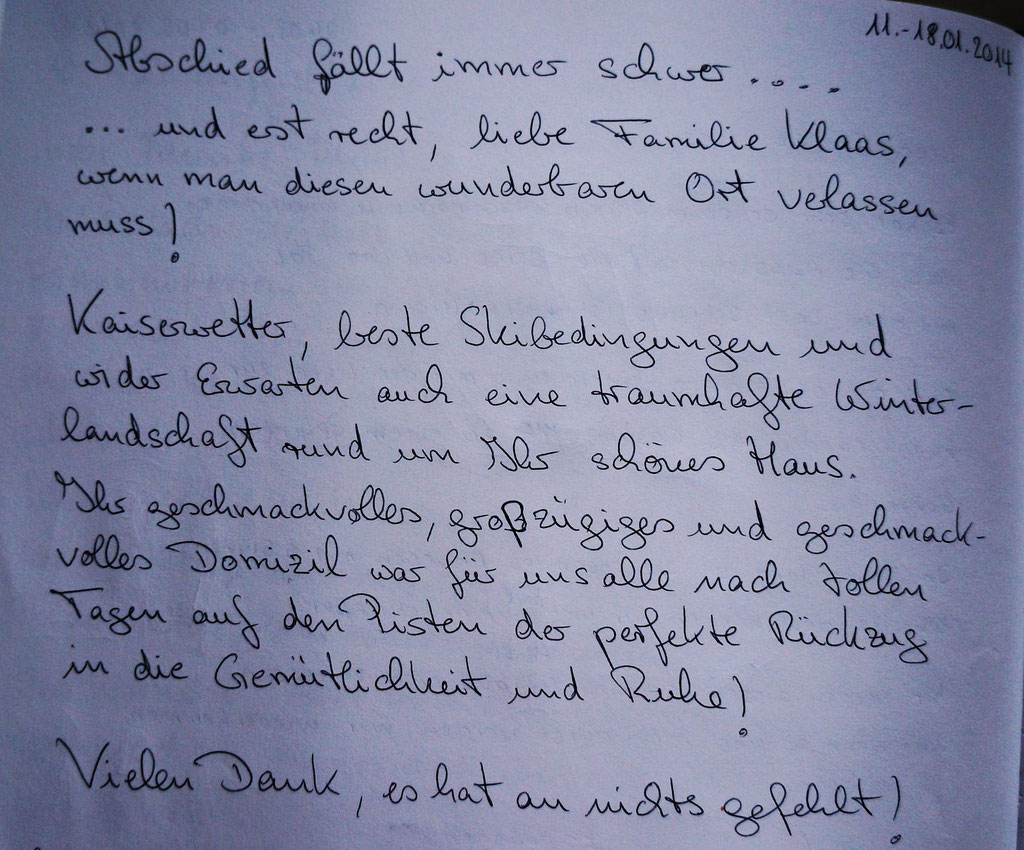 11.-18.01.2014
Abschied fällt immer schwer....
... und erst recht, liebe Familie Klaas,
wenn man diesen wunderbaren Ort verlassen
muss!
Kaiserwetter, beste Skibedingungen und
wider Erwarten auch eine traumhafte Winter-
landschaft rund um Ihr schönes Haus.
Ihr geschmackvolles, großzügiges und geschmack-
volles Domizil war für uns alle nach tollen
Tagen auf den Pisten der perfekte Rückzug
in die Gemütlichkeit und Ruhe!
Vielen Dank, es hat an nichts gefehlt!